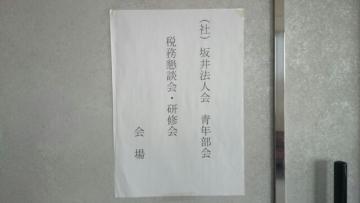 （社）坂井法人会　青年部会
税務懇談会・研修会
会場